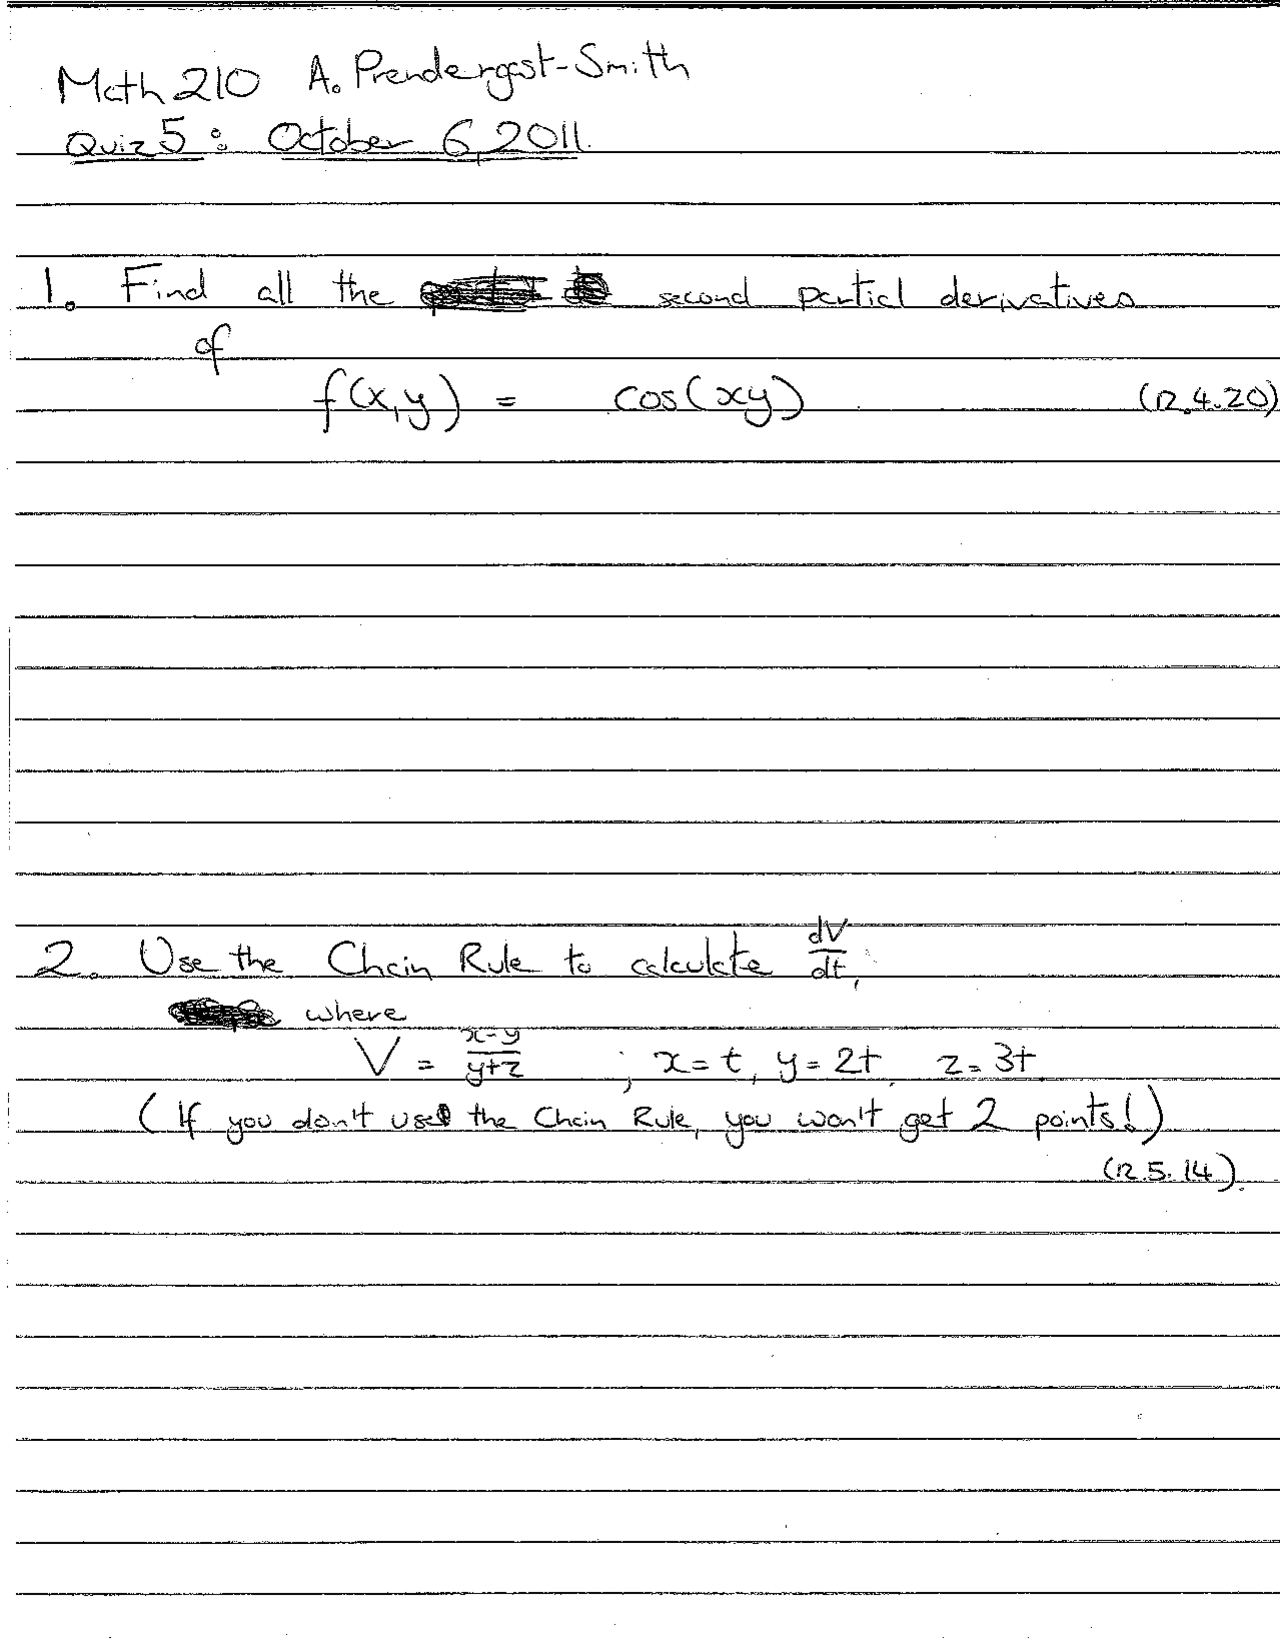 Math 210 A. Prendergast-Smith
Quiz 5: October 6, 2011.
1. Find all the second partial derivatives
of
f(x,y) = cos(xy) (12.4.20)
2. Use the Chain Rule to calculate dV/dt,
where
V = x-y/y+z ; x=t, y=2t, z=3t.
(If you don't use the Chain Rule, you won't get 2 points!)
(12.5.14).